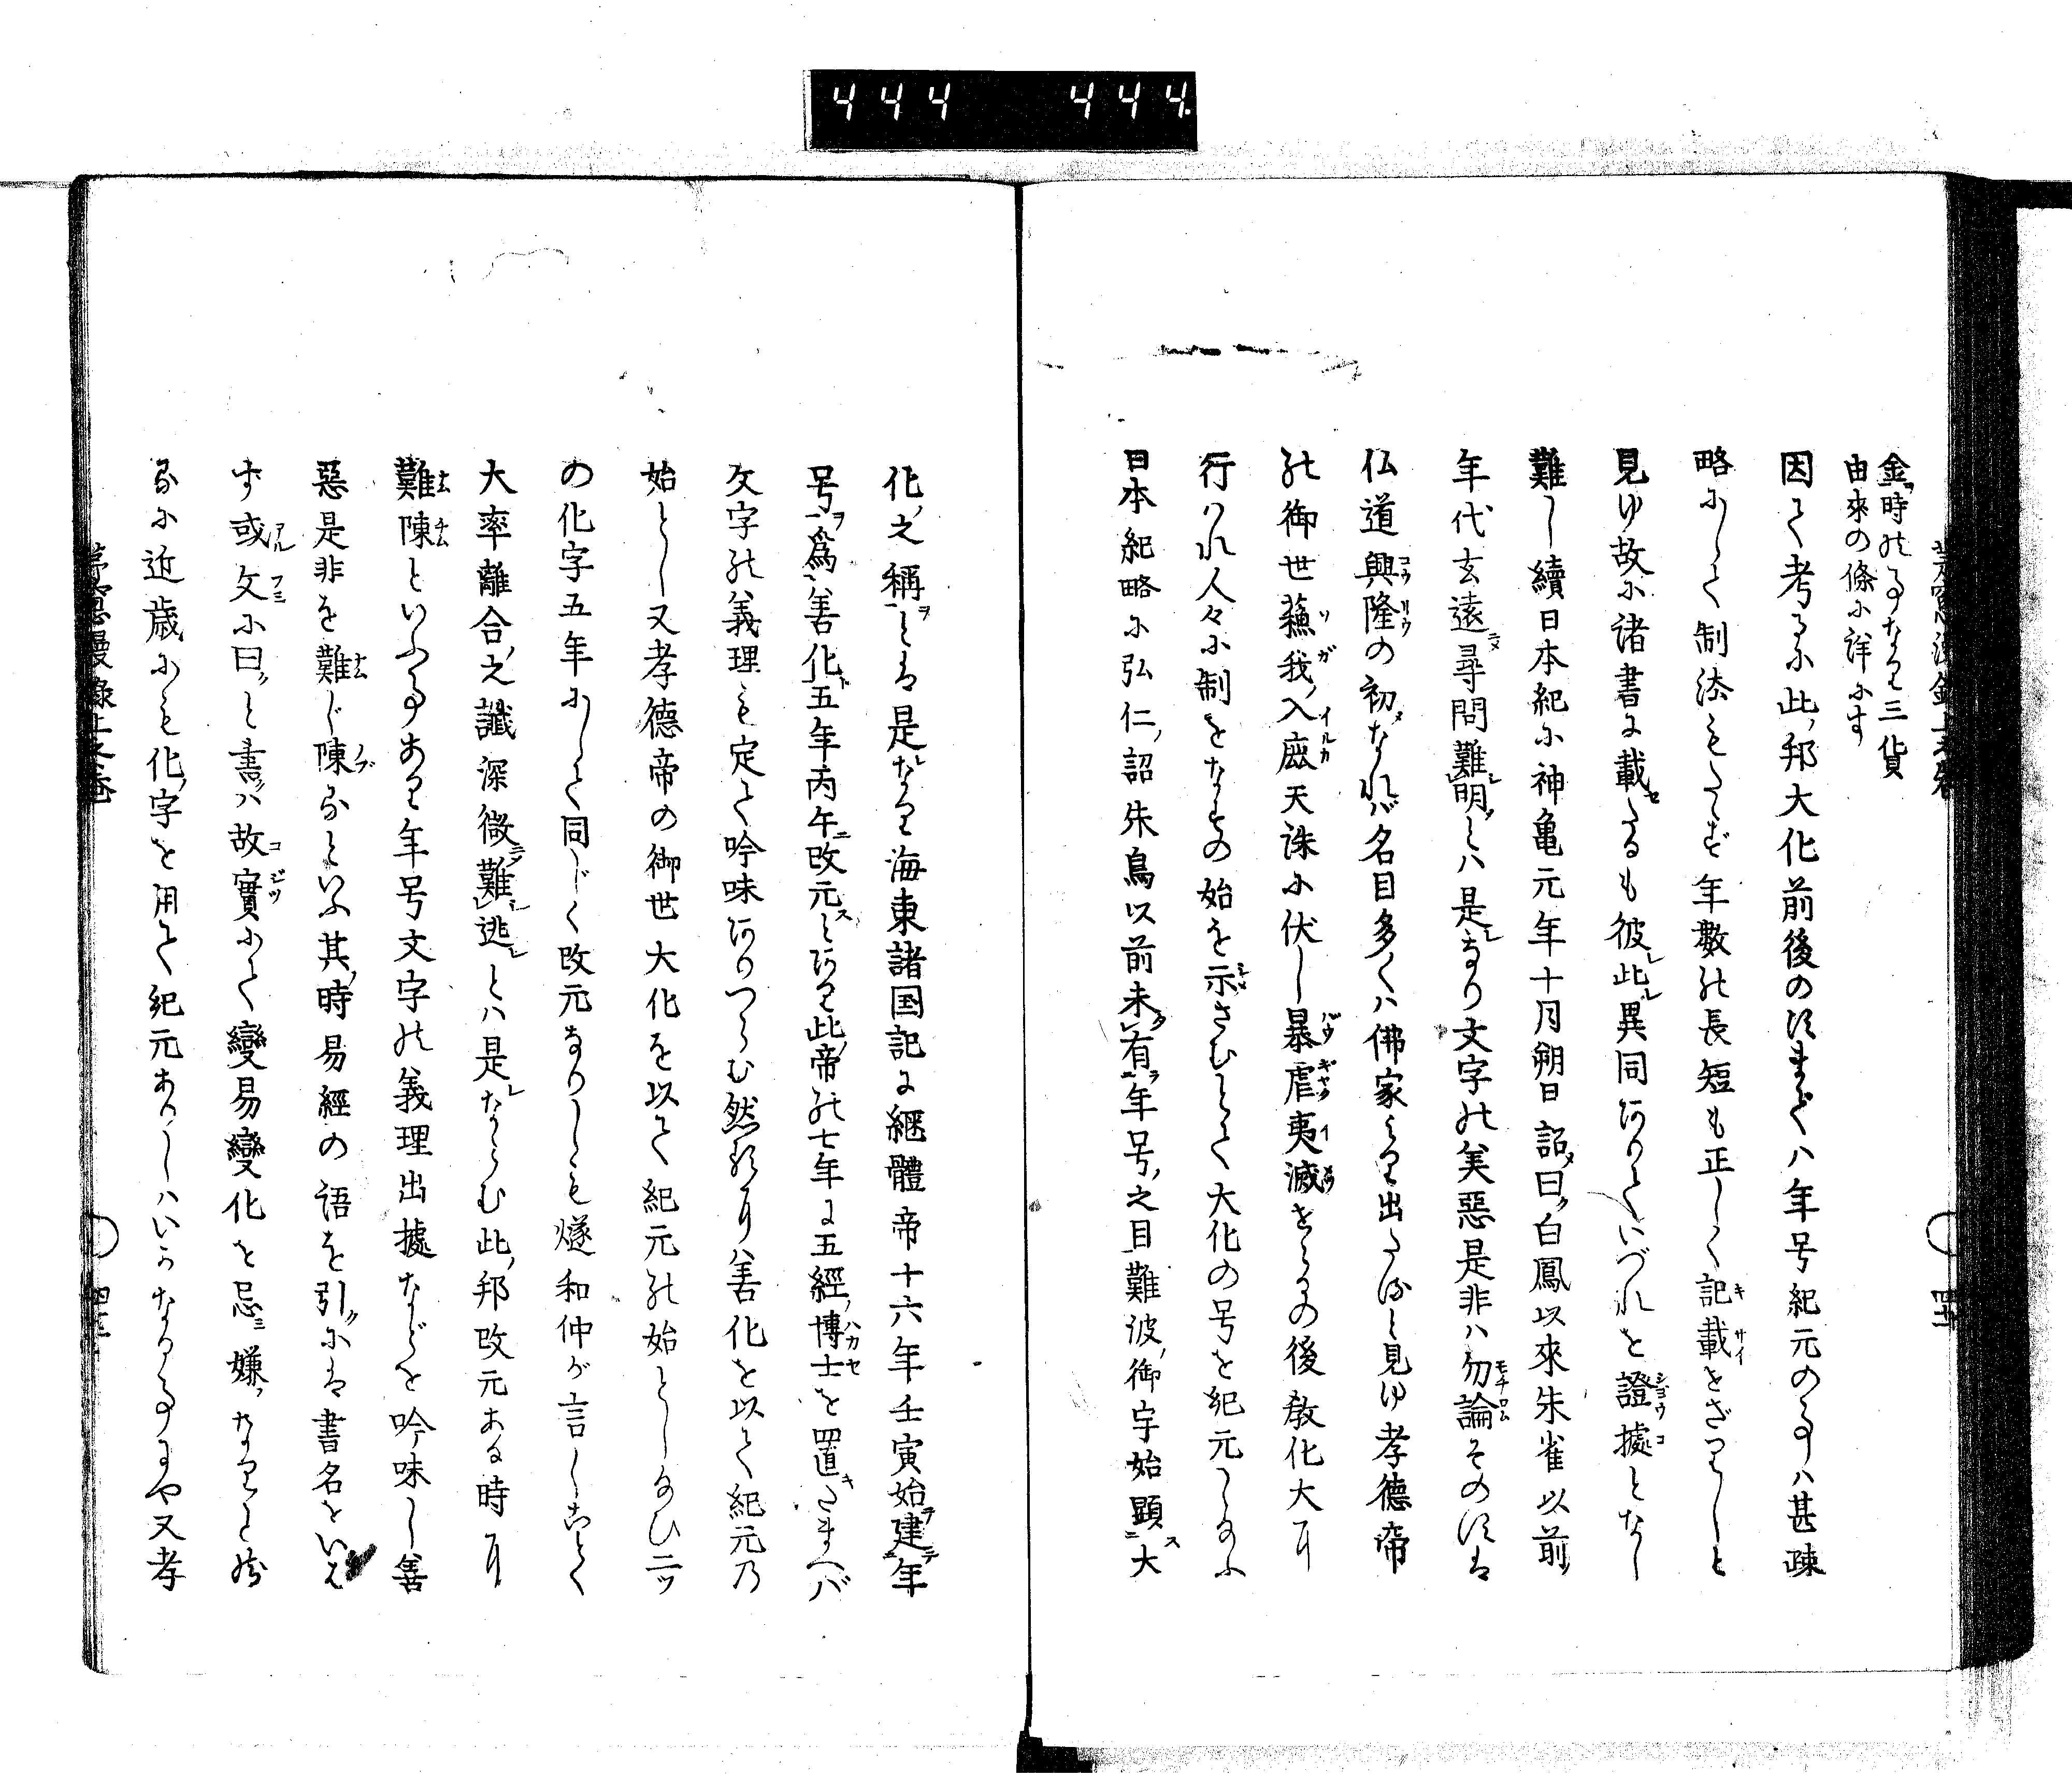 444 444
茅窓漫録上之巻
四十二
金ノ時のことなり三貨
由來の條に詳にす
因て考るに此ノ邦大化前後のほまでハ年号紀元のことハ甚疎
略にして制法もたゝず年數の長短も正しく記載せざりしと
見ゆ故に諸書に載たるも彼レ此レ異同ありていづれを證據となし
難し續日本紀に神亀元年十月朔日詔曰白鳳以來朱雀以前
年代玄遠尋問難明とハ是なり文字の美惡是非ハ勿論そのほは
仏道興隆の初なれバ名目多くハ佛家より出たると見ゆ孝德帝
の御世蘓我ノ入鹿天誅に伏し暴虐夷滅せるの後敎化大に
行ハれ人々に制をなすの始を示さむとて大化の号を紀元し給ふ
日本紀略に弘仁ノ詔朱鳥以前未有年号ノ之目難波ノ御宇始顕大
化ノ之稱とは是なり海東諸国記に継體帝十六年壬寅始建年
号爲善化五年丙午改元とあり此ノ帝の七年に五經ノ博士を置たまへバ
文字の義理も定て吟味ありつらむ然るにハ善化を以て紀元乃
始とし又孝德帝の御世大化を以て紀元の始とし給ひ二ツ
の化字五年にして同じく改元なりしも燧和仲が言しごとく
大率離合ノ之讖深微難逃とハ是ならむ此ノ邦改元ある時に
難陳といふことあり年号文字の義理出據などを吟味し善
惡是非を難じ陳るといふ其ノ時易經の语を引には書名をいは
ず或文に曰と書ハ故實にて變易變化を忌嫌なりと然
るに近歳にも化ノ字を用て紀元ありしハいかなることにや又孝
茅窓漫録上之巻
四十二